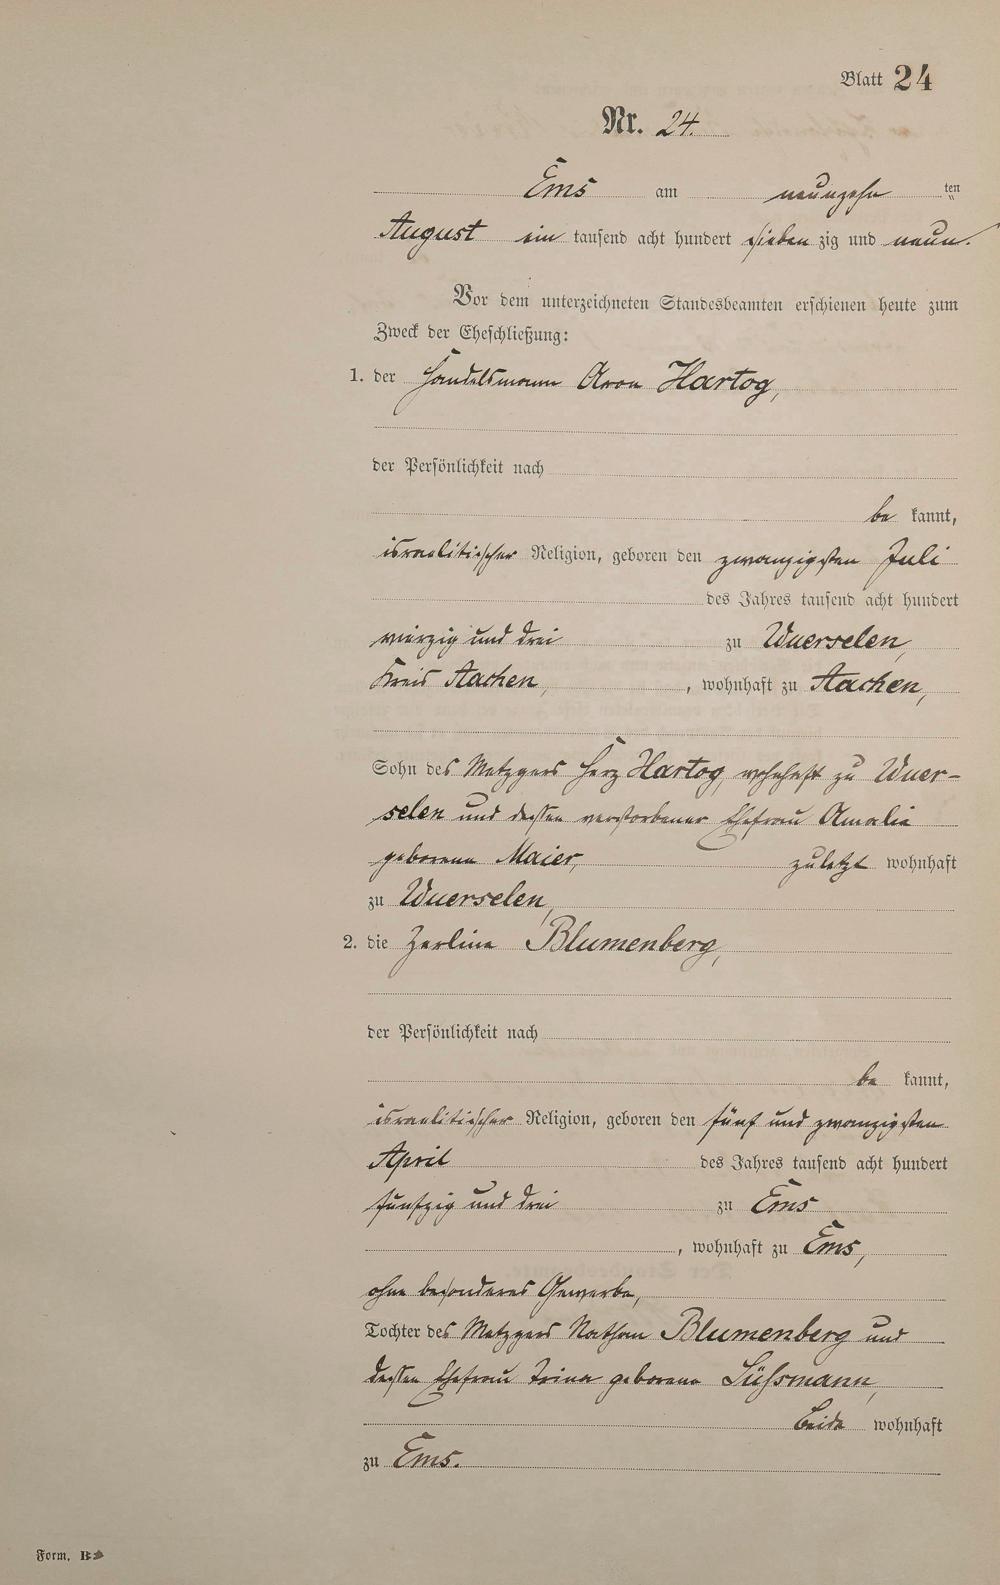 Blatt 24
Nr. 24.
Ems am neunzehn ten
August ein tausend acht hundert sieben zig und neun.
Vor dem unterzeichneten Standesbeamten erschienen heute zum
Zweck der Eheschließung:
1. der Handelsmann Aron Hartog,
der Persönlichkeit nach
be kannt,
israelitischer Religion, geboren den zwanzigsten Juli
des Jahres tausend acht hundert
vierzig und drei zu Wuerselen,
Kreis Aachen, , wohnhaft zu Aachen,
Sohn des Metzgers Herz Hartog, wohnhaft zu Wuer-
selen und dessen verstorbener Ehefrau Amalie
geborene Maier, zuletzt wohnhaft
zu Wuerselen,
2. die Zerline Blumenberg,
der Persönlichkeit nach
be kannt,
israelitischer Religion, geboren den fünf und zwanzigsten
April des Jahres tausend acht hundert
fünfzig und drei zu Ems
, wohnhaft zu Ems,
ohne besonderes Gewerbe,
Tochter des Metzgers Nathan Blumenberg und
dessen Ehefrau geborene Süßmann,
beide wohnhaft
zu Ems.
Form. B